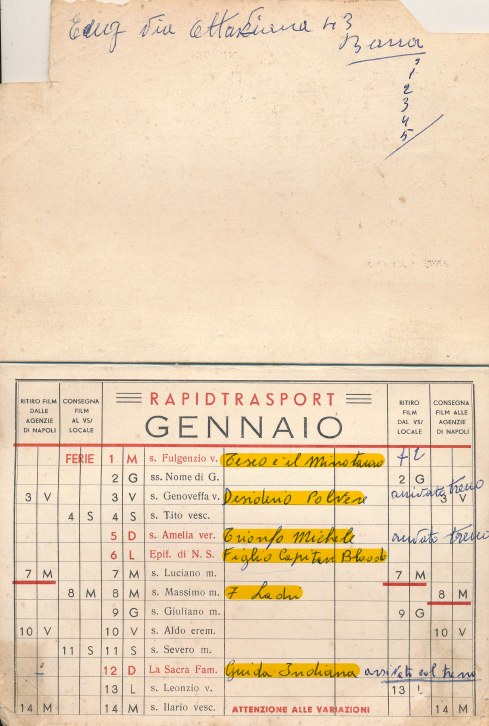 Via Ottaviano 43
Barra
1
2
3
4
5
RITIRO FILM DALLE AGENZIE DI NAPOLI
CONSEGNA FILM AL VS/ LOCALE
RAPIDTRASPORT
GENNAIO
RITIRO FILM DAL VS/ LOCALE
CONSEGNA FILM ALLE AGENZIE DI NAPOLI
FERIE 1 M s. Fulgenzio v. Teseo e il Minotauro
2 G ss. Nome di G. 2 G
3 V 3 V s. Genoveffa v. Desiderio Polvere arrivato treno 3 V
4 S 4 S s. Tito vesc.
5 D s. Amelia ver. Trionfo Michele andato treno
6 L Epif. di N. S. Figlio Capitan Blood
7 M 7 M s. Luciano m. 7 M
8 M 8 M s. Massimo m. 7 Ladri 8 M
9 G s. Giuliano m. 9 G
10 V 10 V s. Aldo erem. 10 V
11 S 11 S s. Severo m.
12 D La Sacra Fam. Guida Indiana arrivato col treno
13 L s. Leonzio v. 13 L
14 M 14 M s. Ilario vesc. ATTENZIONE ALLE VARIAZIONI 14 M